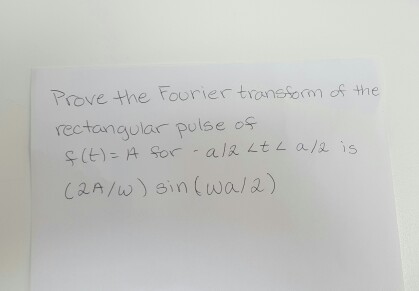 Prove the Fourier transform of the
rectangular pulse of
f(t) = A for -a/2 < t < a/2 is
(2A/w) sin(wa/2)